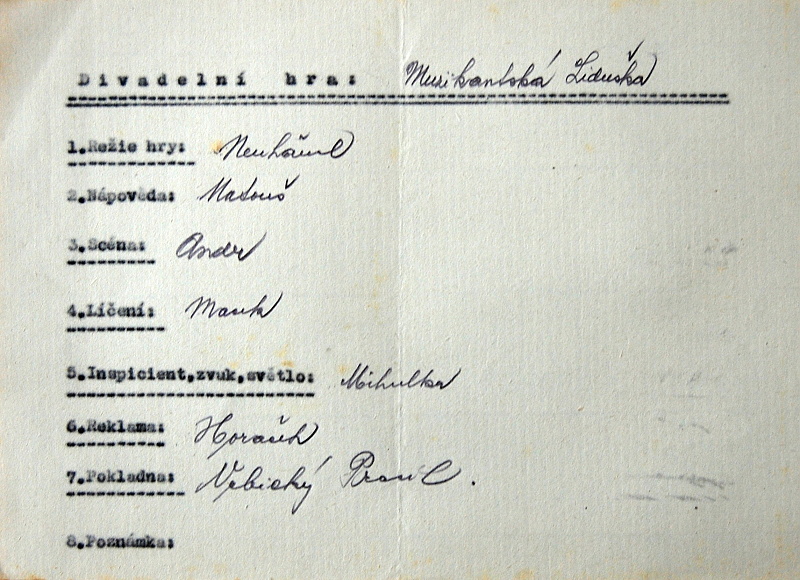 Divadelní hra: Muzikantská Liduška
1.Režie hry:
2.Nápověda: Matouš
3.Scéna: Andr
4.Líčení:
5.Inspicient,zvuk,světlo: Mihulka
6.Reklama:
7.Pokladna:
8.Poznámka: